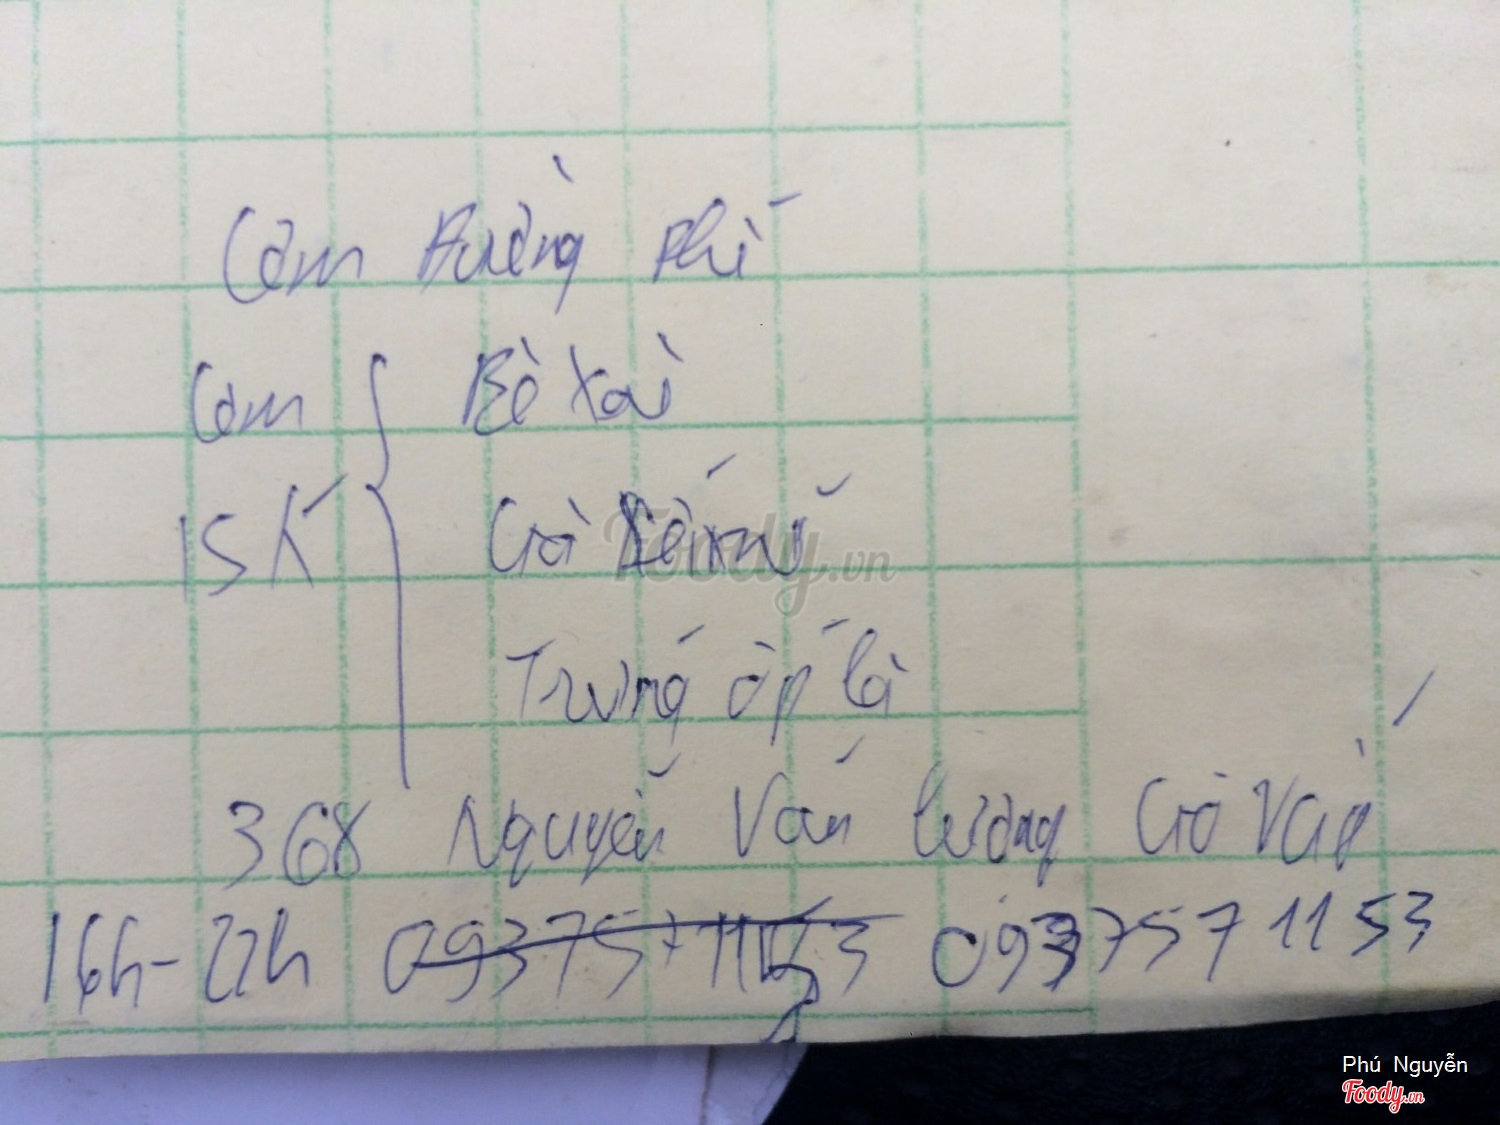 Cơm Đường Phố
Cơm Bò Xào
15K Gà
Trứng ốp la
368 Nguyễn Văn Lượng Gò Vấp
16h-22h 0937571153 0937571153
Foody.vn
Phú Nguyễn
Foody.vn